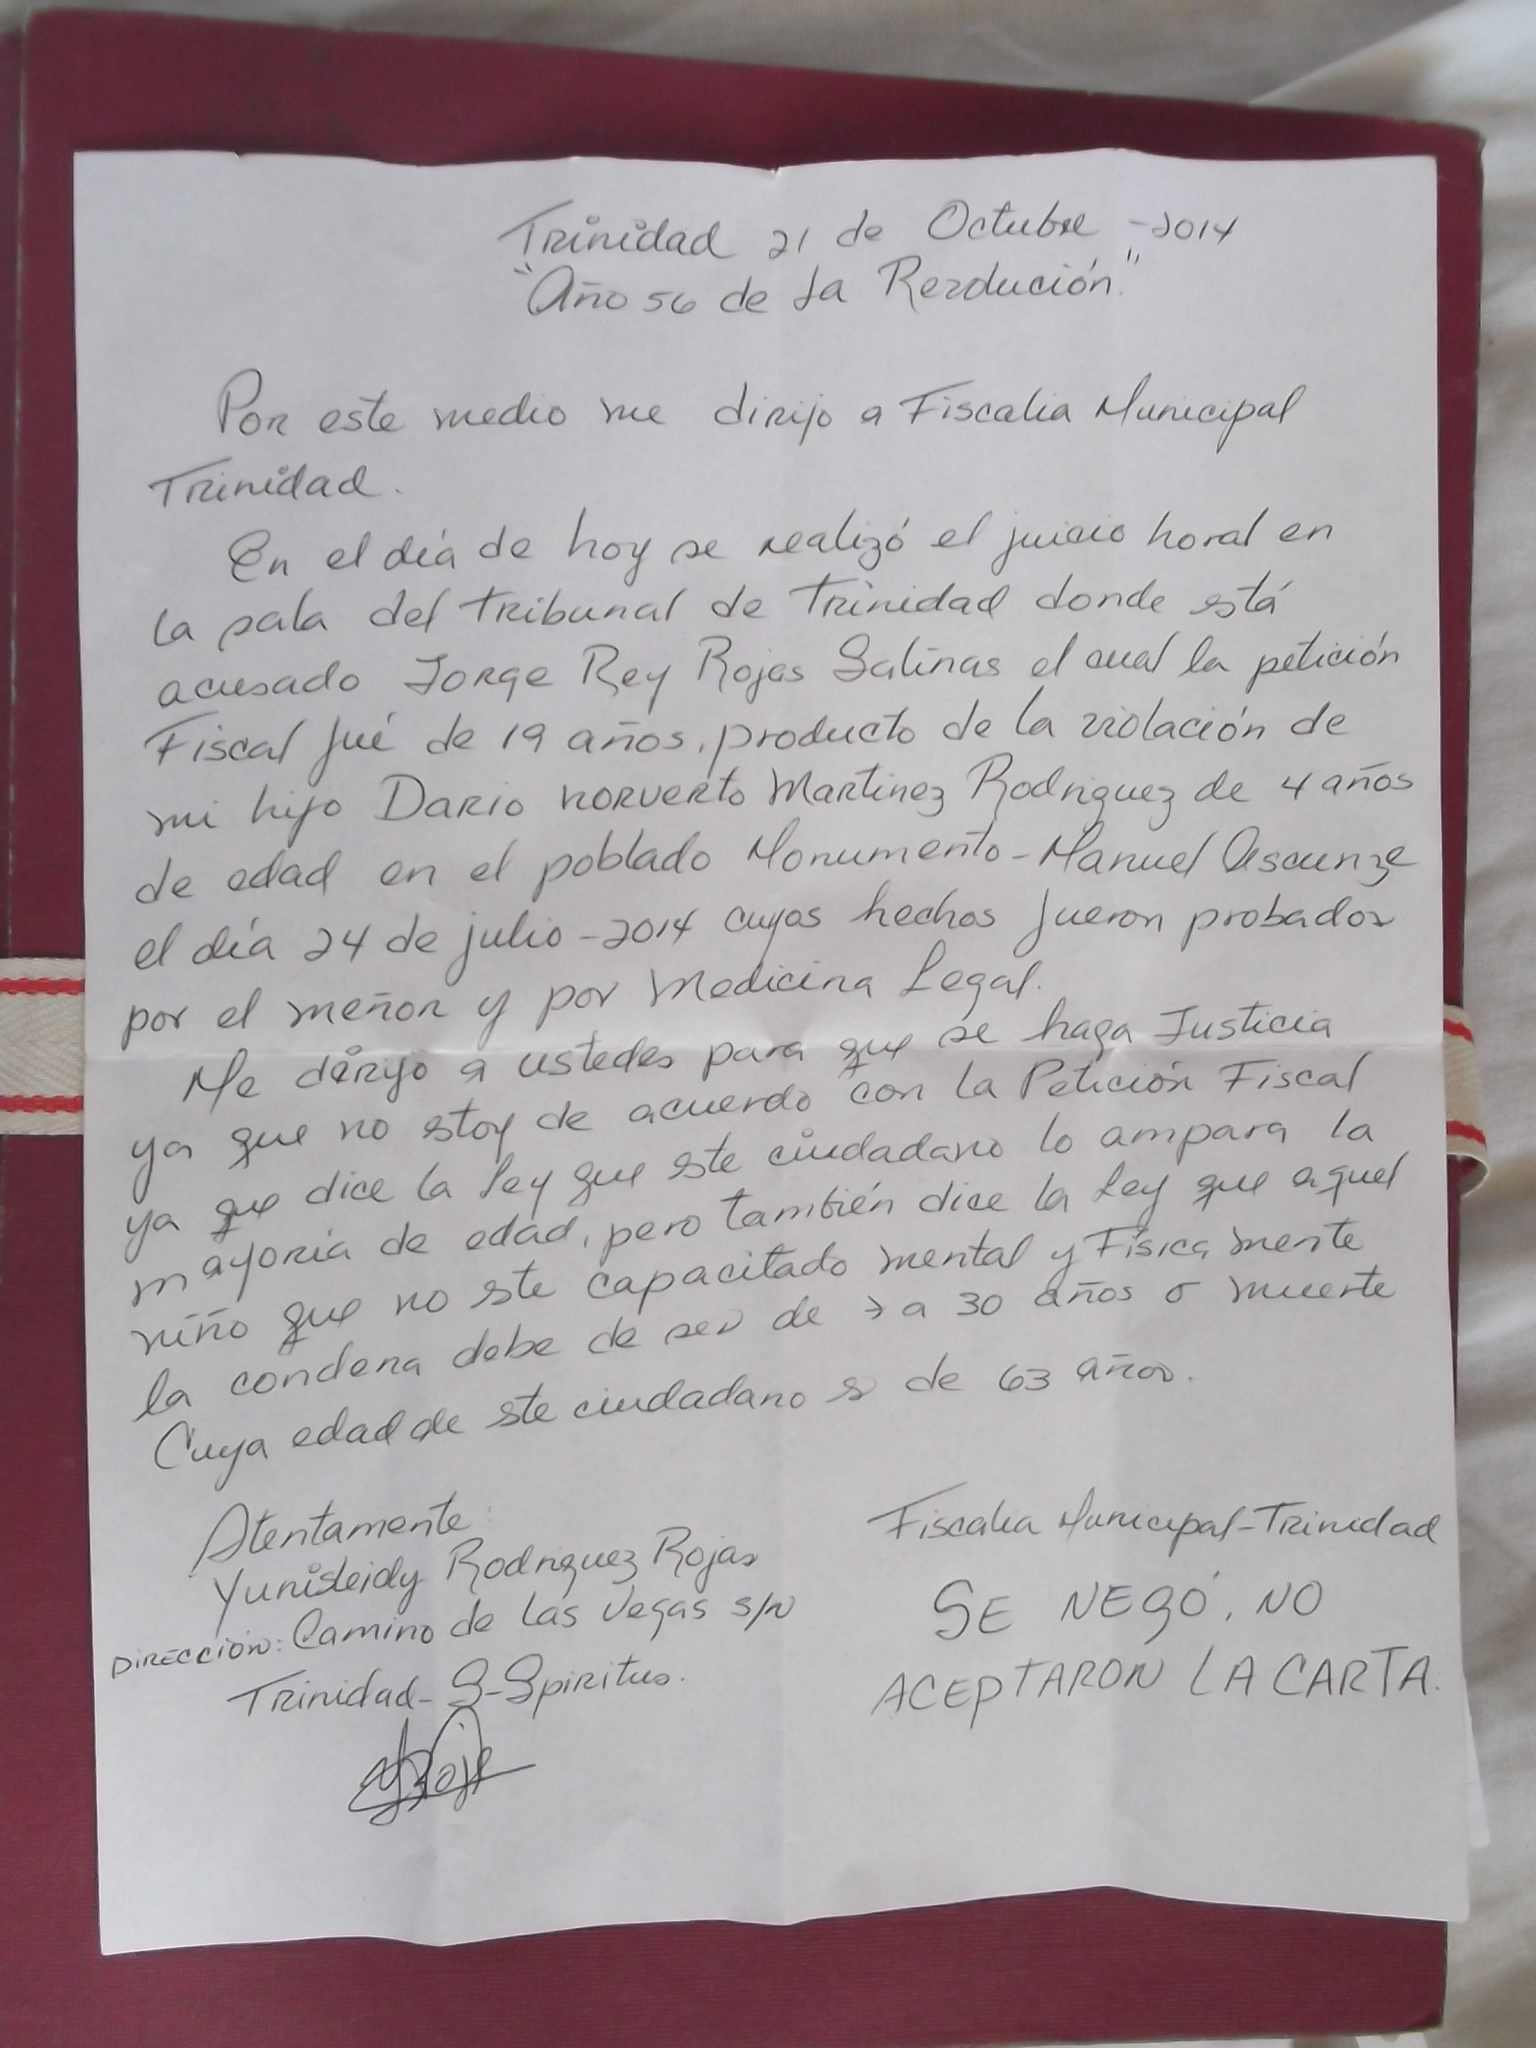 Trinidad 21 de Octubre -2014
"Año 56 de la Revolución."
Por este medio me dirijo a Fiscalia Municipal
Trinidad.
En el día de hoy se realizó el juicio horal en
la sala del tribunal de Trinidad donde está
acusado Jorge Rey Rojas Salinas el cual la petición
Fiscal fué de 19 años, producto de la violación de
mi hijo Dario Norverto Martinez Rodriguez de 4 años
de edad en el poblado Monumento-Manuel Ascunze
el día 24 de julio-2014 cuyos hechos fueron probados
por el meñor y por Medicina Legal.
Me dirijo a ustedes para que se haga Justicia
ya que no stoy de acuerdo con la Petición Fiscal
ya que dice la ley que este ciudadano lo ampara la
mayoria de edad, pero también dice la ley que aquel
niño que no ste capacitado mental y Físicamente
la condena debe de ser de > a 30 años o muerte
Cuya edad de ste ciudadano s de 63 años.
Atentamente:
Yunisleidy Rodriguez Rojas
DIRECCIÓN: Camino de las Vegas s/n
Trinidad-S-Spiritus.
Fiscalia Municipal-Trinidad
SE NEGÓ, NO
ACEPTARON LA CARTA.